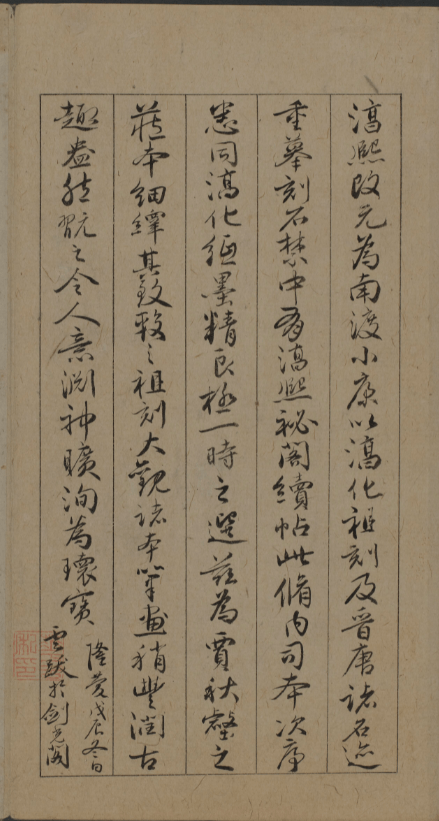 淳熙改元為南渡小康以淳化祖刻及晉唐諸名迹
重摹刻石禁中有淳熙秘閣續帖此脩内司本次序
悉同淳化紙墨精良極一時之選茲為賈秋壑之
藏本細繹其致較之祖刻大觀諸本筆畫稍豐潤古
趣盎然翫之令人意澍神曠洵為瓌寶
隆慶戊辰冬日
跋於劍光閣